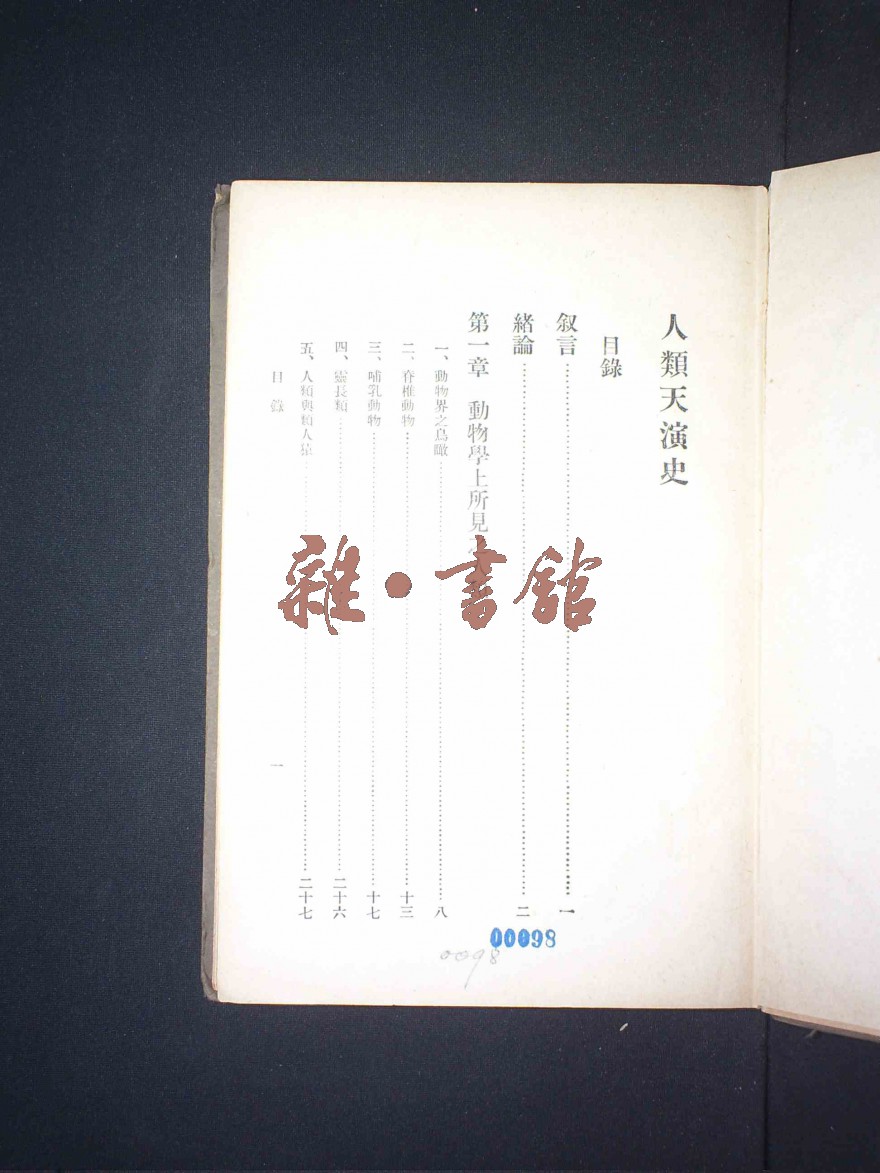 人類天演史
目錄
叙言……一
緒論……二
第一章 動物學上所見之人
一、動物界之鳥瞰……八
二、脊椎動物……十三
三、哺乳動物……十七
四、靈長類……二十六
五、人類與類人猿……二十七
目錄
一
雜·書館
00098
0098